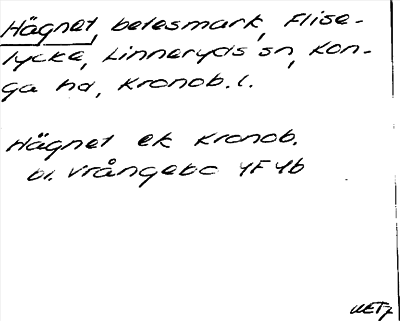 Hägnet, betesmark, Flise-
lycke, Linneryds sn, Kon-
ga hd, Kronob. l.
Hägnet ek Kronob.
bl. Vrångebo 4F4b